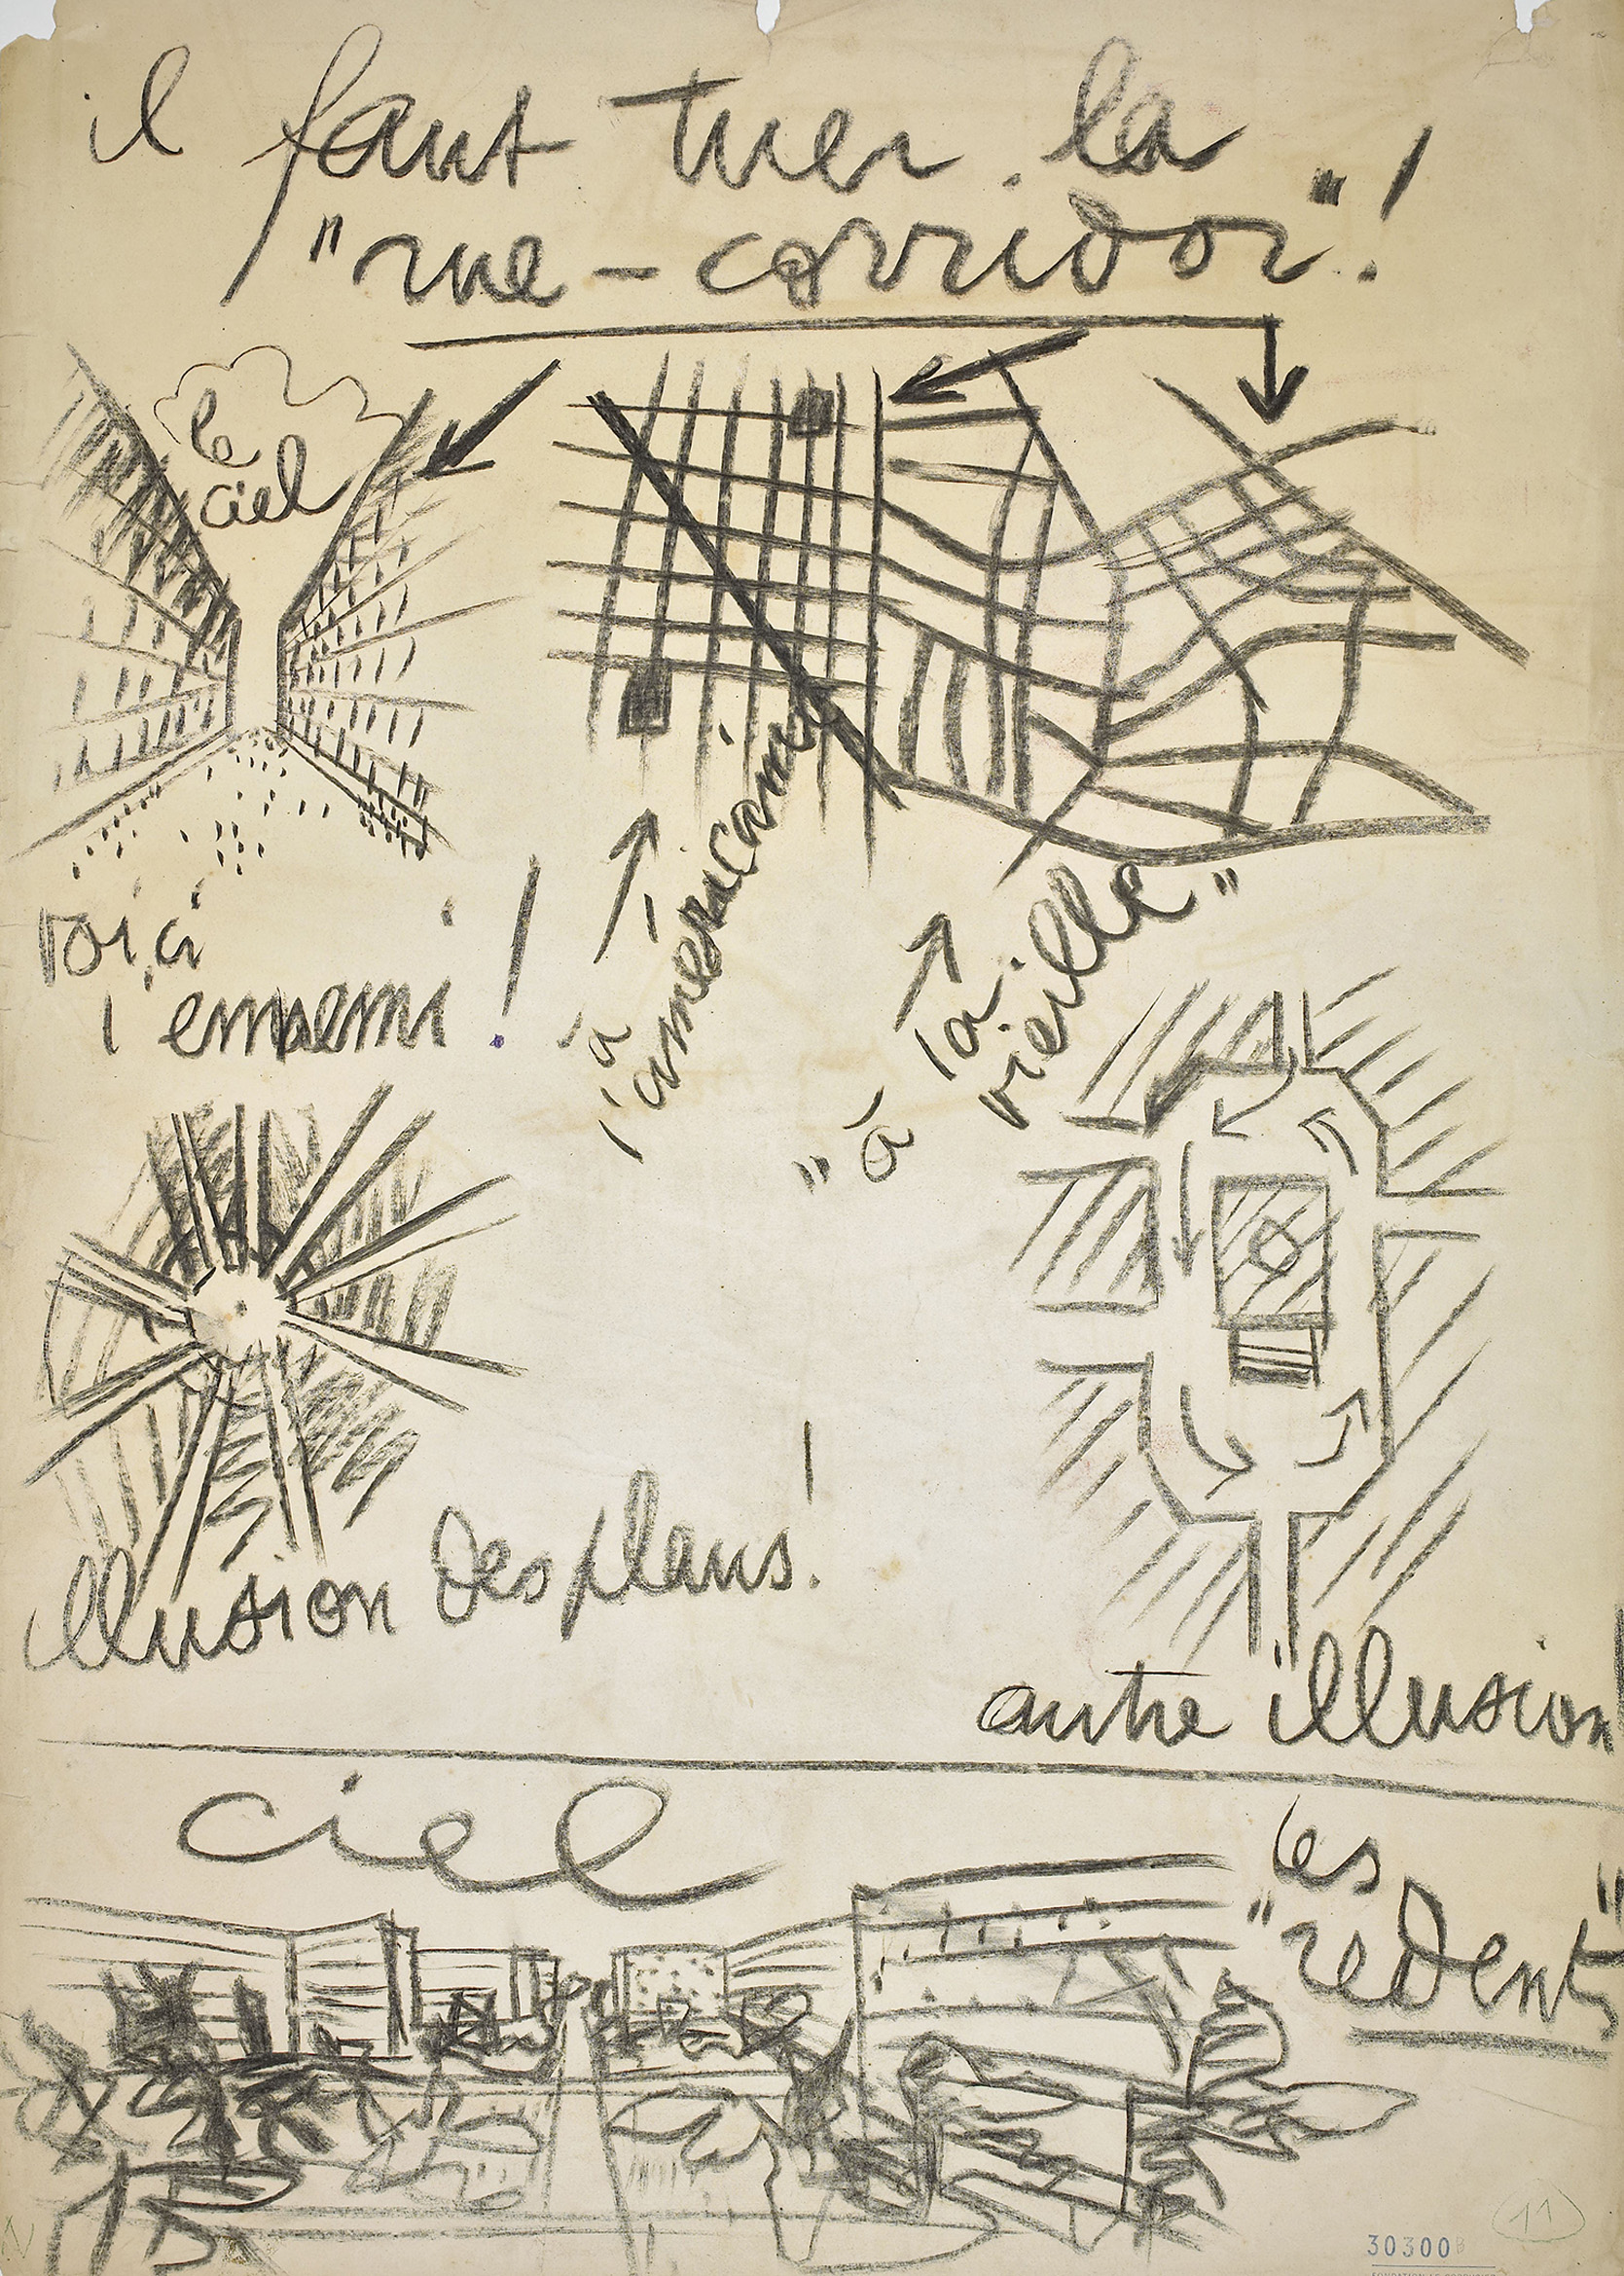 il faut tuer la
"rue-corridor"!
le
ciel
voici
l'ennemi!
à
l'américaine
"à
la
vieille"
illusion des plans!
autre illusion!
ciel
les
"redents"
11
30300B